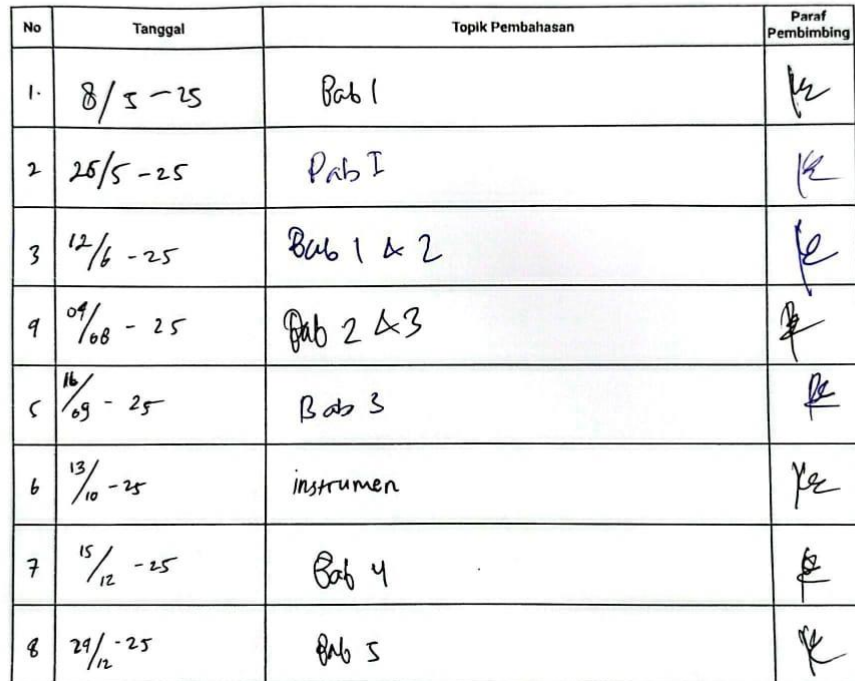 No Tanggal Topik Pembahasan Paraf Pembimbing
1. 8/5-25 Bab 1
2 26/5-25 Bab I
3 12/6-25 Bab 1 & 2
4 04/08-25 Bab 2 & 3
5 16/09-25 Bab 3
6 13/10-25 instrumen
7 15/12-25 Bab 4
8 29/12-25 Bab 5